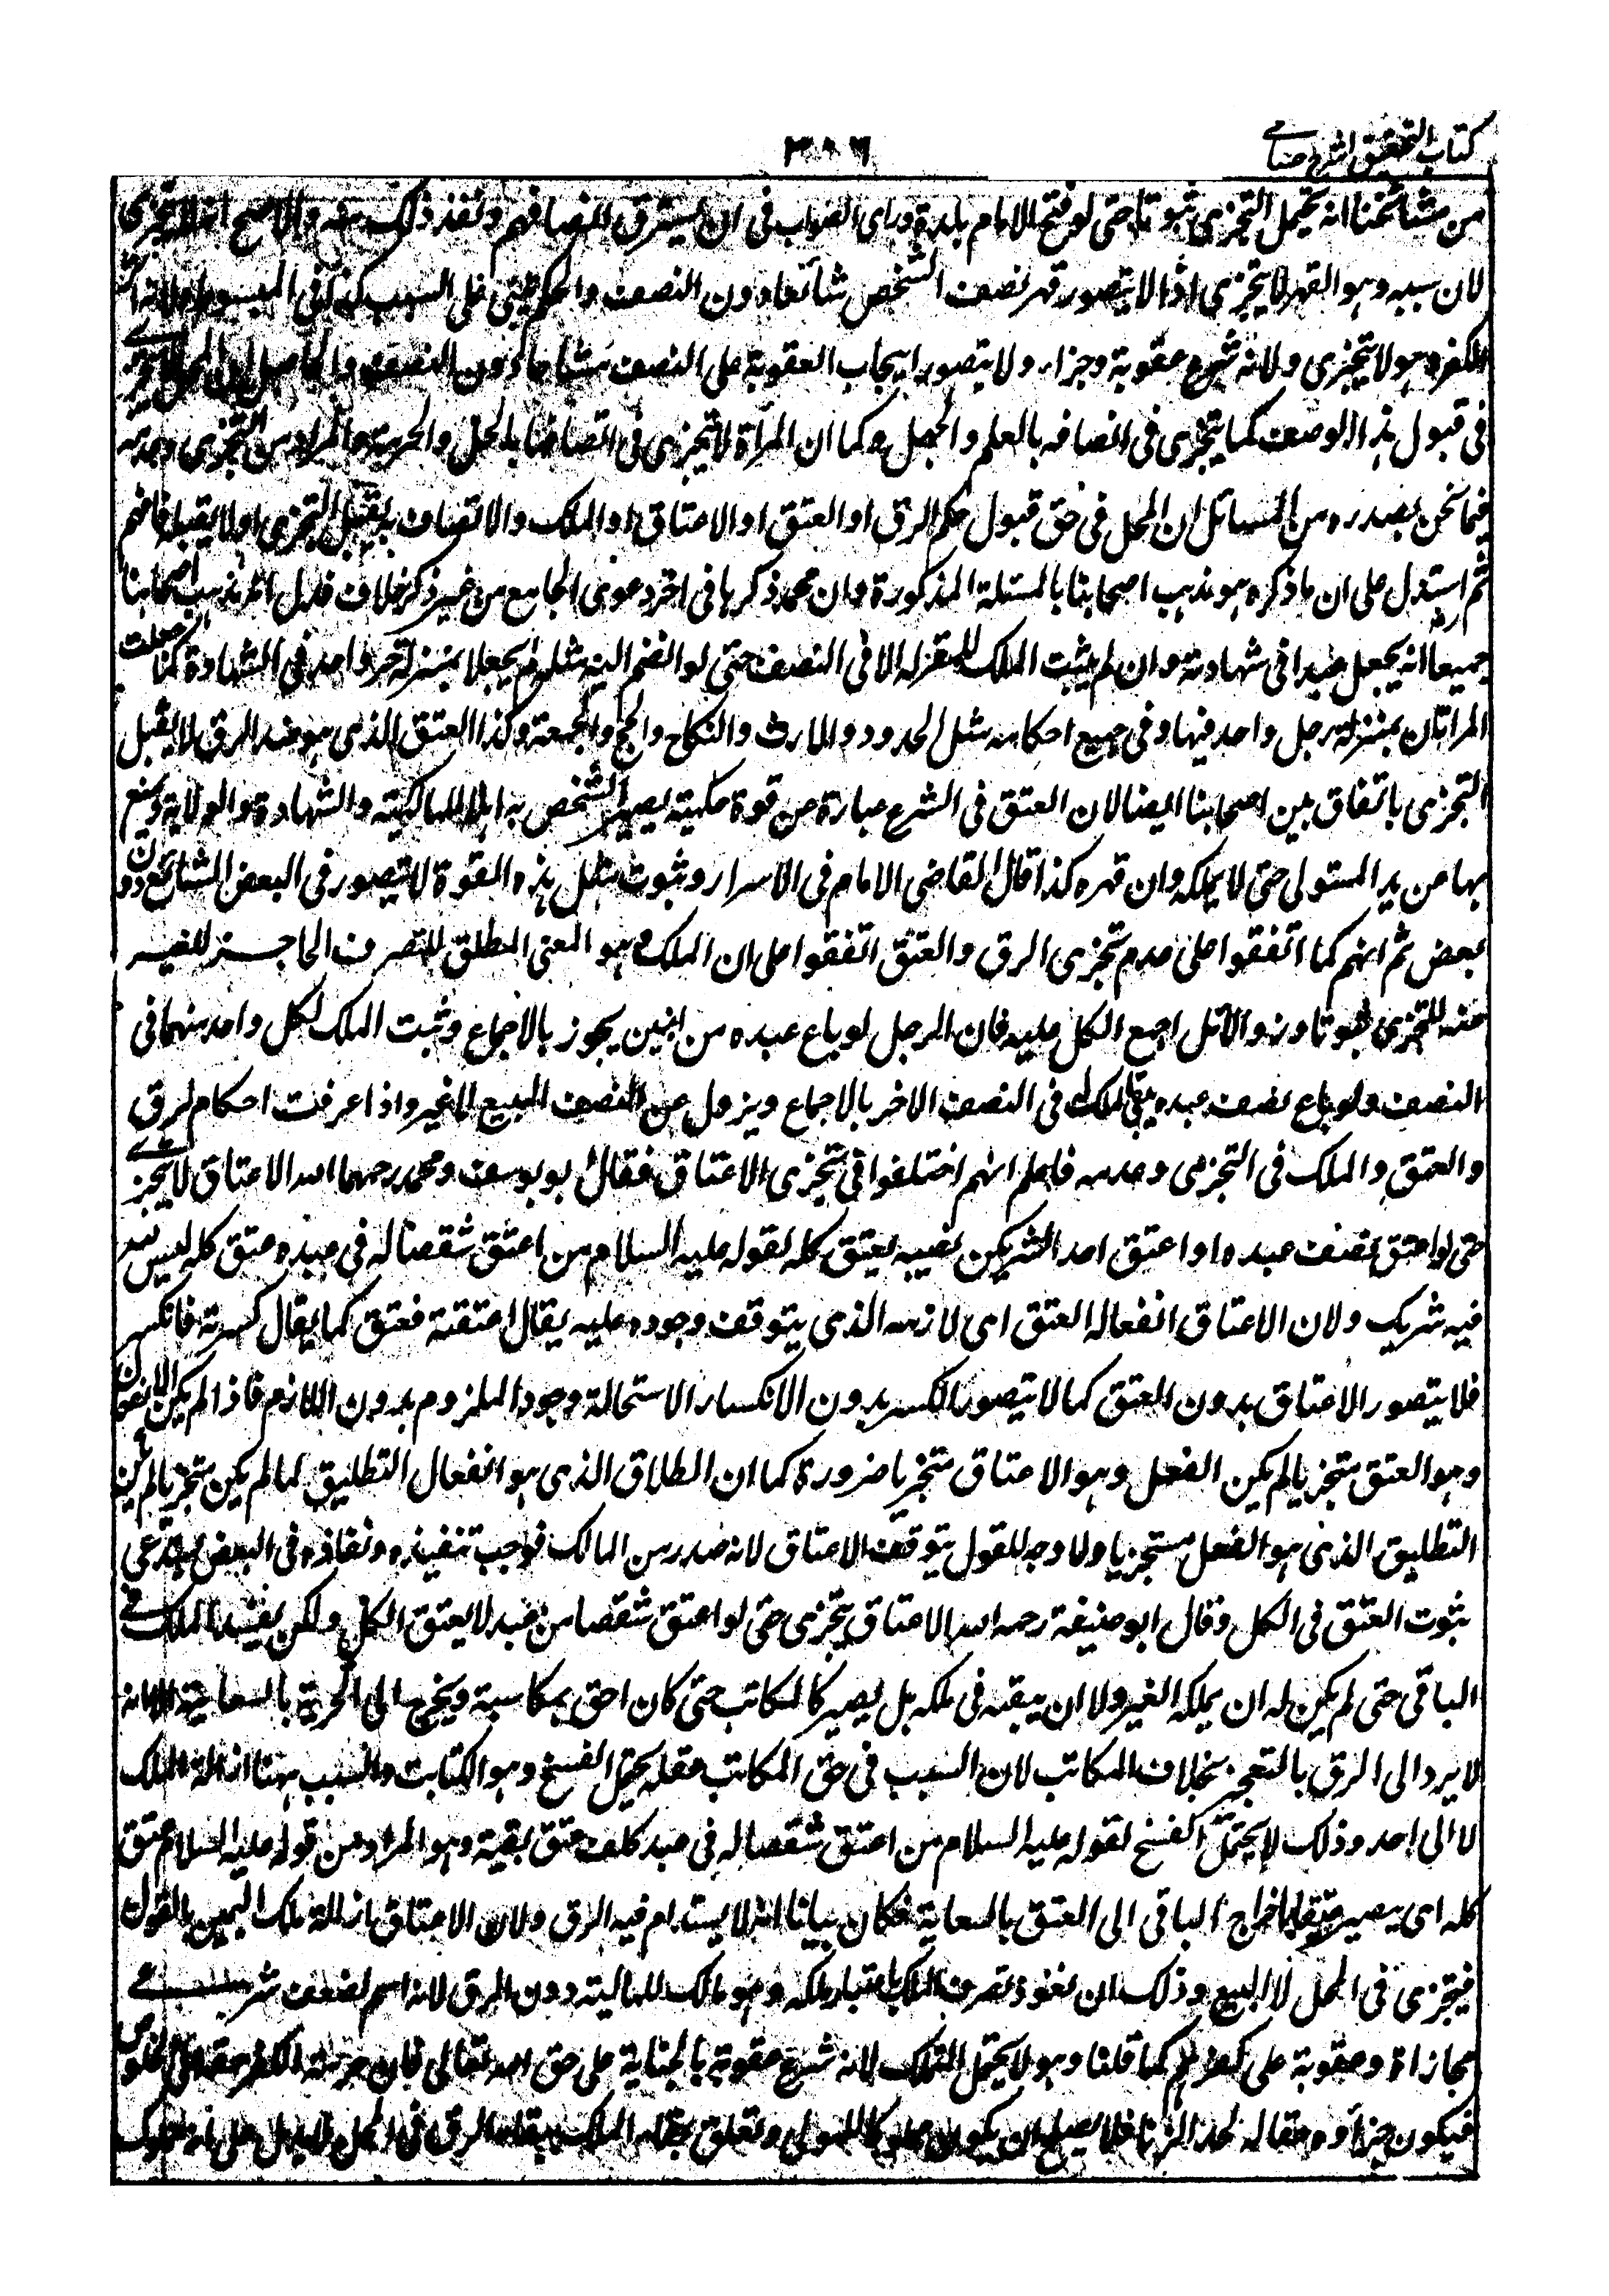 كتاب التحقيق شرح حسامي
٣٠٦
من مشائخنا انه يحتمل التجزى ثبوتا حتى لو فتح الامام بلدة ورأى الصواب فى ان يسترق انصافهم ونفذ ذلك منه والاصح انه لا يتجزى
لان سببه وهو القهر لا يتجزى اذ لا يتصور قهر نصف الشخص شائعا دون النصف والحكم يبتنى على السبب كذا فى المبسوط ولانه اثر
الكفر وهو لا يتجزى ولانه شرع عقوبة وجزاء ولا يتصور ايجاب العقوبة على النصف مشاعا دون النصف والحاصل ان المحل لا يتجزى
فى قبول هذا الوصف كما لا يتجزى فى اتصافه بالعلم والجهل وكما ان المرأة لا تتجزى فى اتصافها بالحل والحرمة والمراد من التجزى وعدمه
فيما نحن بصدره من المسائل ان المحل فى حق قبول حكم الرق او العتق او الاعتاق او الملك والاتصاف به يقبل التجزى او لا يقبله فافهم
ثم استدل على ان ما ذكره هو مذهب اصحابنا بالمسئلة المذكورة وان محمد ذكرها فى اخر دعوى الجامع من غير ذكر خلاف فدل انه مذهب اصحابنا
جميعا انه يجعل عبدا فى شهادته وان لم يثبت الملك للمقر له الا فى النصف حتى لو انضم اليه مثله لم يجعلا بمنزلة حر واحد فى الشهادة كما جعلت
المراتان بمنزلة رجل واحد فيها وفى جميع احكامه مثل الحدود والارث والنكاح والحج والجمعة وكذا العتق الذى هو ضد الرق لا يقبل
التجزى باتفاق بين اصحابنا ايضا لان العتق فى الشرع عبارة عن قوة حكمية يصير الشخص به اهلا للمالكية والشهادة والولاية ويمنع
بها من يد المستولى حتى لا يملكه وان قهره كذا قال القاضى الامام فى الاسرار وثبوت مثل هذه القوة لا يتصور فى البعض الشائع دون
بعض ثم انهم كما اتفقوا على عدم تجزى الرق والعتق اتفقوا على ان الملك وهو المعنى المطلق للتصرف الحاجز للغير
عنه للتجزى ثبوتا وزوالا قل اجمع الكل عليه فان الرجل لو باع عبده من اثنين يجوز بالاجماع ويثبت الملك لكل واحد منهما فى
النصف ولو باع نصف عبده يبقى الملك فى النصف الاخر بالاجماع ويزول عن النصف المبيع لا غير واذا عرفت احكام الرق
والعتق والملك فى التجزى وعدمه فاعلم انهم اختلفوا فى تجزى الاعتاق فقال ابو يوسف ومحمد رحمهما الله الاعتاق لا يتجزى
حتى لو اعتق نصف عبده او اعتق احد الشريكين نصيبه يعتق كله لقوله عليه السلام من اعتق شقصا له فى عبده عتق كله ليس لله
فيه شريك ولان الاعتاق انفعاله العتق اى لازمه الذى يتوقف وجوده عليه يقال اعتقته فعتق كما يقال كسرته فانكسر
فلا يتصور الاعتاق بدون العتق كما لا يتصور الكسر بدون الانكسار لاستحالة وجود الملزوم بدون اللازم فاذا لم يكن الانفعال
وهو العتق متجزيا لم يكن الفعل وهو الاعتاق متجزيا ضرورة كما ان الطلاق الذى هو انفعال التطليق لما لم يكن متجزيا لم يكن
التطليق الذى هو الفعل متجزيا ولا وجه للقول بتوقف الاعتاق لانه صدر من المالك فوجب تنفيذه ونفاذه فى البعض يستدعى
ثبوت العتق فى الكل وقال ابو حنيفة رحمه الله الاعتاق يتجزى حتى لو اعتق شقصا من عبد لا يعتق الكل ولكن يفسد الملك فى
الباقى حتى لم يكن له ان يملكه الغير ولا ان يبقيه فى ملكه بل يصير كالمكاتب حتى كان احق بمكاسبه ويخرج الى الحرية بالسعاية الا انه
لا يرد الى الرق بالتعجيز بخلاف المكاتب لان السبب فى حق المكاتب عقد يحتمل الفسخ وهو الكتابت والسبب ههنا ازالة الملك
لا الى احد وذلك لا يحتمل الفسخ لقوله عليه السلام من اعتق شقصا له فى عبد كلف عتق بقيته وهو المراد من قوله عليه السلام عتق
كله اى يصير عتقا باخراج الباقى الى العتق بالسعاية فكان بيانا انه لا يستدام فيه الرق ولان الاعتاق ازالة ملك اليمين بالقول
فيتجزى فى المحل لا البيع وذلك ان نفوذ تصرف المالك باعتبار ملكه وهو مالك للمالية دون الرق لانه اسم لضعف شرعى
مجازاة وعقوبة على كفرهم كما قلنا وهو لا يحتمل التملك لانه شرع عقوبة بالجناية على حق الله تعالى فان حرمة الكفر حقه على الخلوص
فيكون جزاؤه حقا له كحد الزنا فلا يصلح ان يكون مملوكا للمولى وتعلق بقاء الملك ببقاء الرق فى المحل لا يدل على انه مملوك